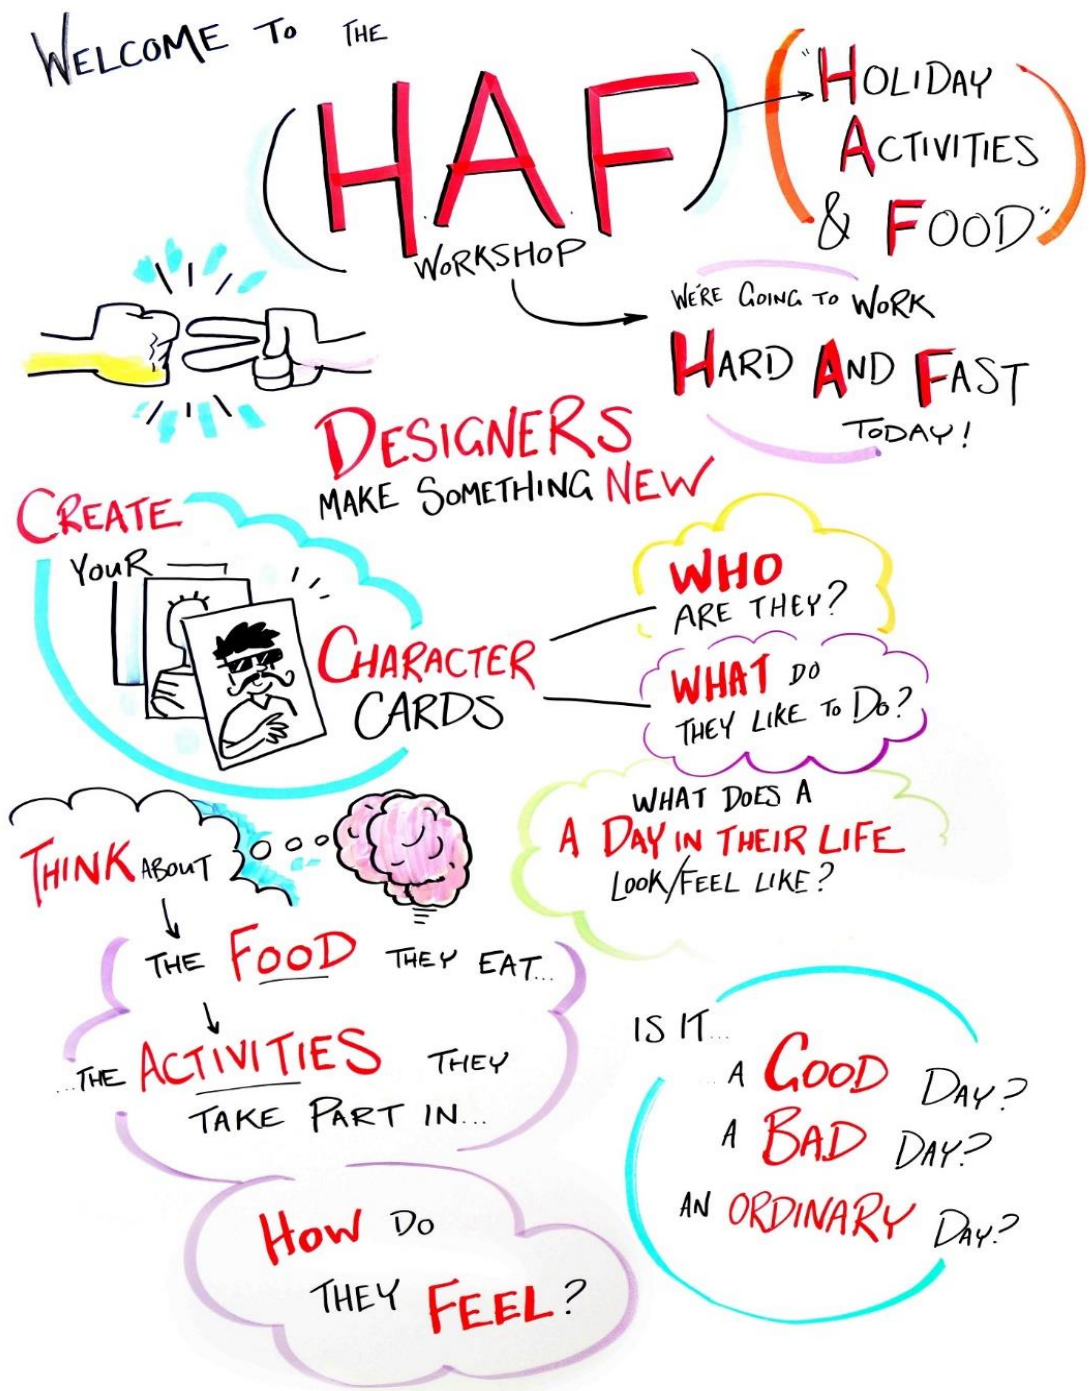 WELCOME TO THE
(HAF)
WORKSHOP
"HOLIDAY
ACTIVITIES
& FOOD"
WE'RE GOING TO WORK
HARD AND FAST
TODAY!
DESIGNERS
MAKE SOMETHING NEW
CREATE
YOUR
CHARACTER
CARDS
WHO
ARE THEY?
WHAT DO
THEY LIKE TO DO?
WHAT DOES A
A DAY IN THEIR LIFE
LOOK/FEEL LIKE?
THINK ABOUT
THE FOOD THEY EAT...
...THE ACTIVITIES THEY
TAKE PART IN...
HOW DO
THEY FEEL?
IS IT...
A GOOD DAY?
A BAD DAY?
AN ORDINARY DAY?